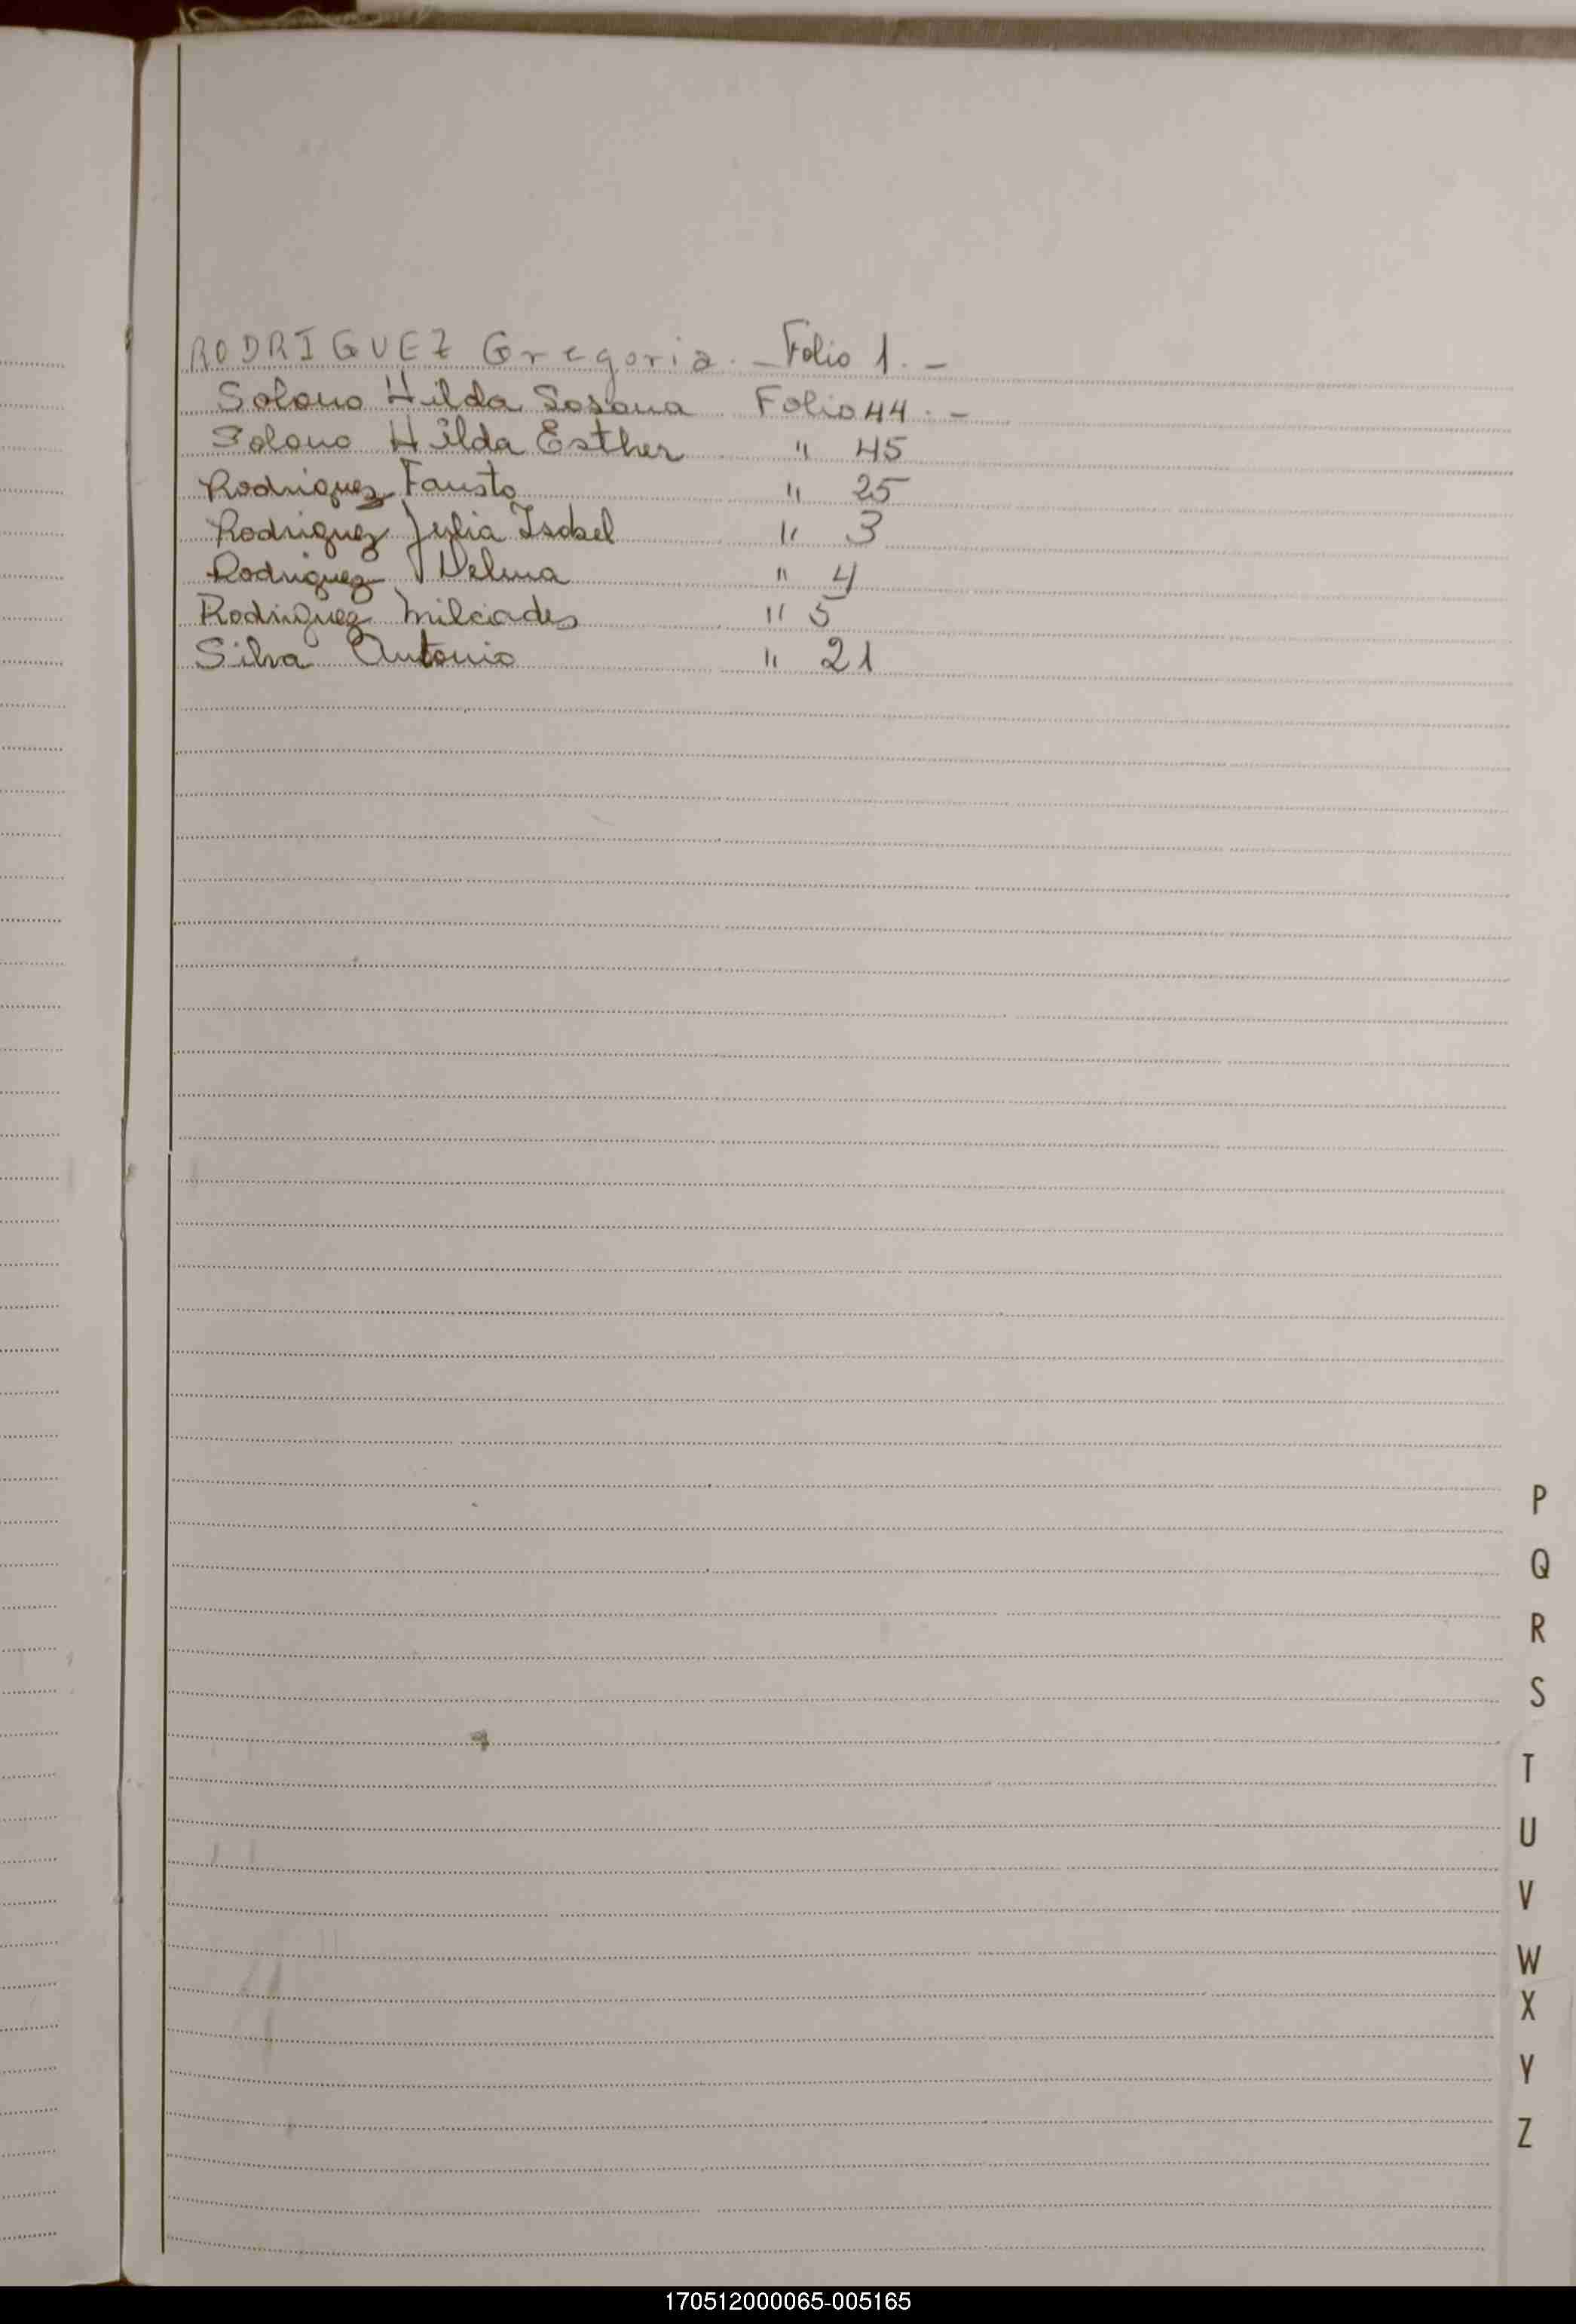 RODRIGUEZ Gregoria. - Folio 1. -
Solano Hilda Sosana Folio 44. -
Solano Hilda Esther " 45
Rodriguez Fausto " 25
Rodriguez Julia Isabel " 3
Rodriguez Delma " 4
Rodriguez Milciades " 5
Silva Antonio " 21
P
Q
R
S
T
U
V
W
X
Y
Z
170512000065-005165